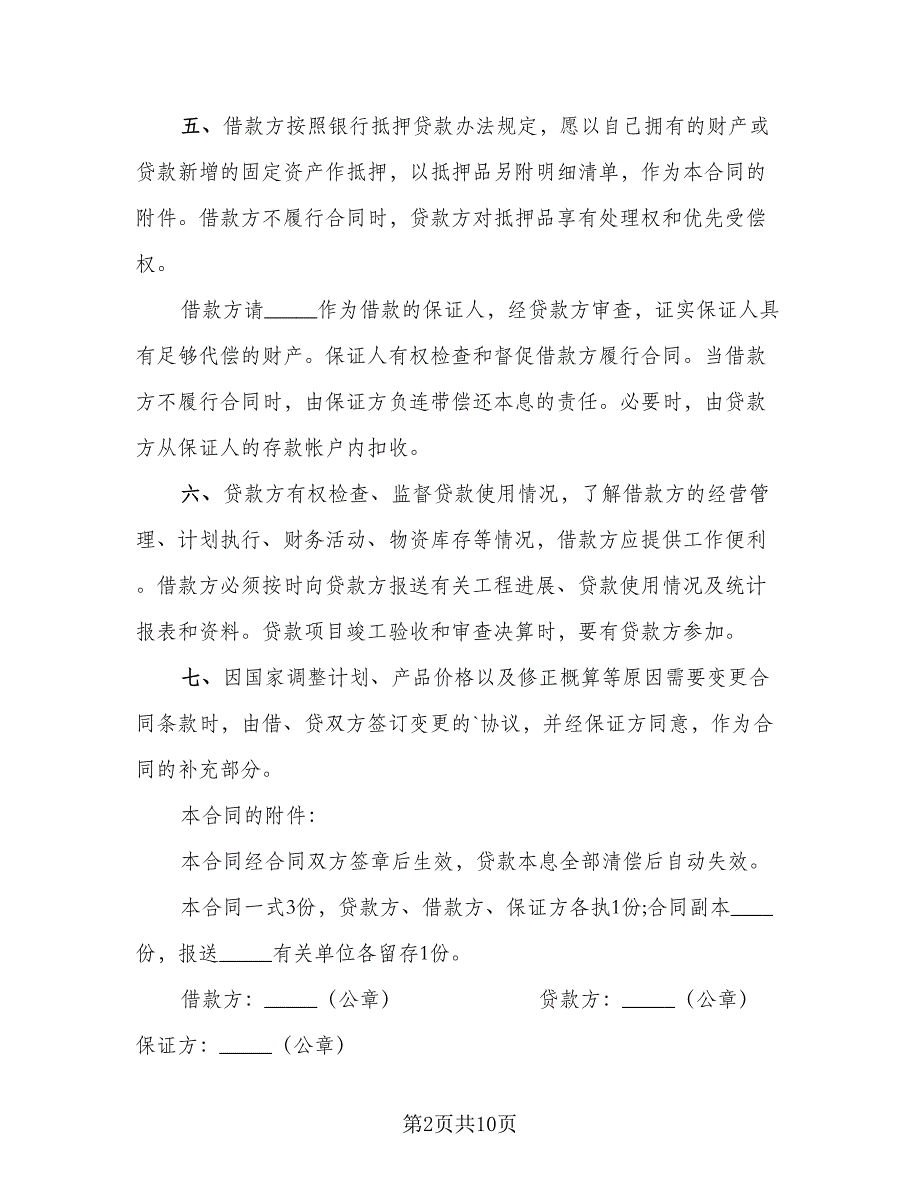 五、借款方按照银行抵押贷款办法规定，愿以自己拥有的财产或
贷款新增的固定资产作抵押，以抵押品另附明细清单，作为本合同的
附件。借款方不履行合同时，贷款方对抵押品享有处理权和优先受偿
权。
借款方请_____作为借款的保证人，经贷款方审查，证实保证人具
有足够代偿的财产。保证人有权检查和督促借款方履行合同。当借款
方不履行合同时，由保证方负连带偿还本息的责任。必要时，由贷款
方从保证人的存款帐户内扣收。
六、贷款方有权检查、监督贷款使用情况，了解借款方的经营管
理、计划执行、财务活动、物资库存等情况，借款方应提供工作便利
。借款方必须按时向贷款方报送有关工程进展、贷款使用情况及统计
报表和资料。贷款项目竣工验收和审查决算时，要有贷款方参加。
七、因国家调整计划、产品价格以及修正概算等原因需要变更合
同条款时，由借、贷双方签订变更的`协议，并经保证方同意，作为合
同的补充部分。
本合同的附件：
本合同经合同双方签章后生效，贷款本息全部清偿后自动失效。
本合同一式3份，贷款方、借款方、保证方各执1份;合同副本____
份，报送_____有关单位各留存1份。
借款方：_____（公章） 贷款方：_____（公章）
保证方：_____（公章）
第2页共10页